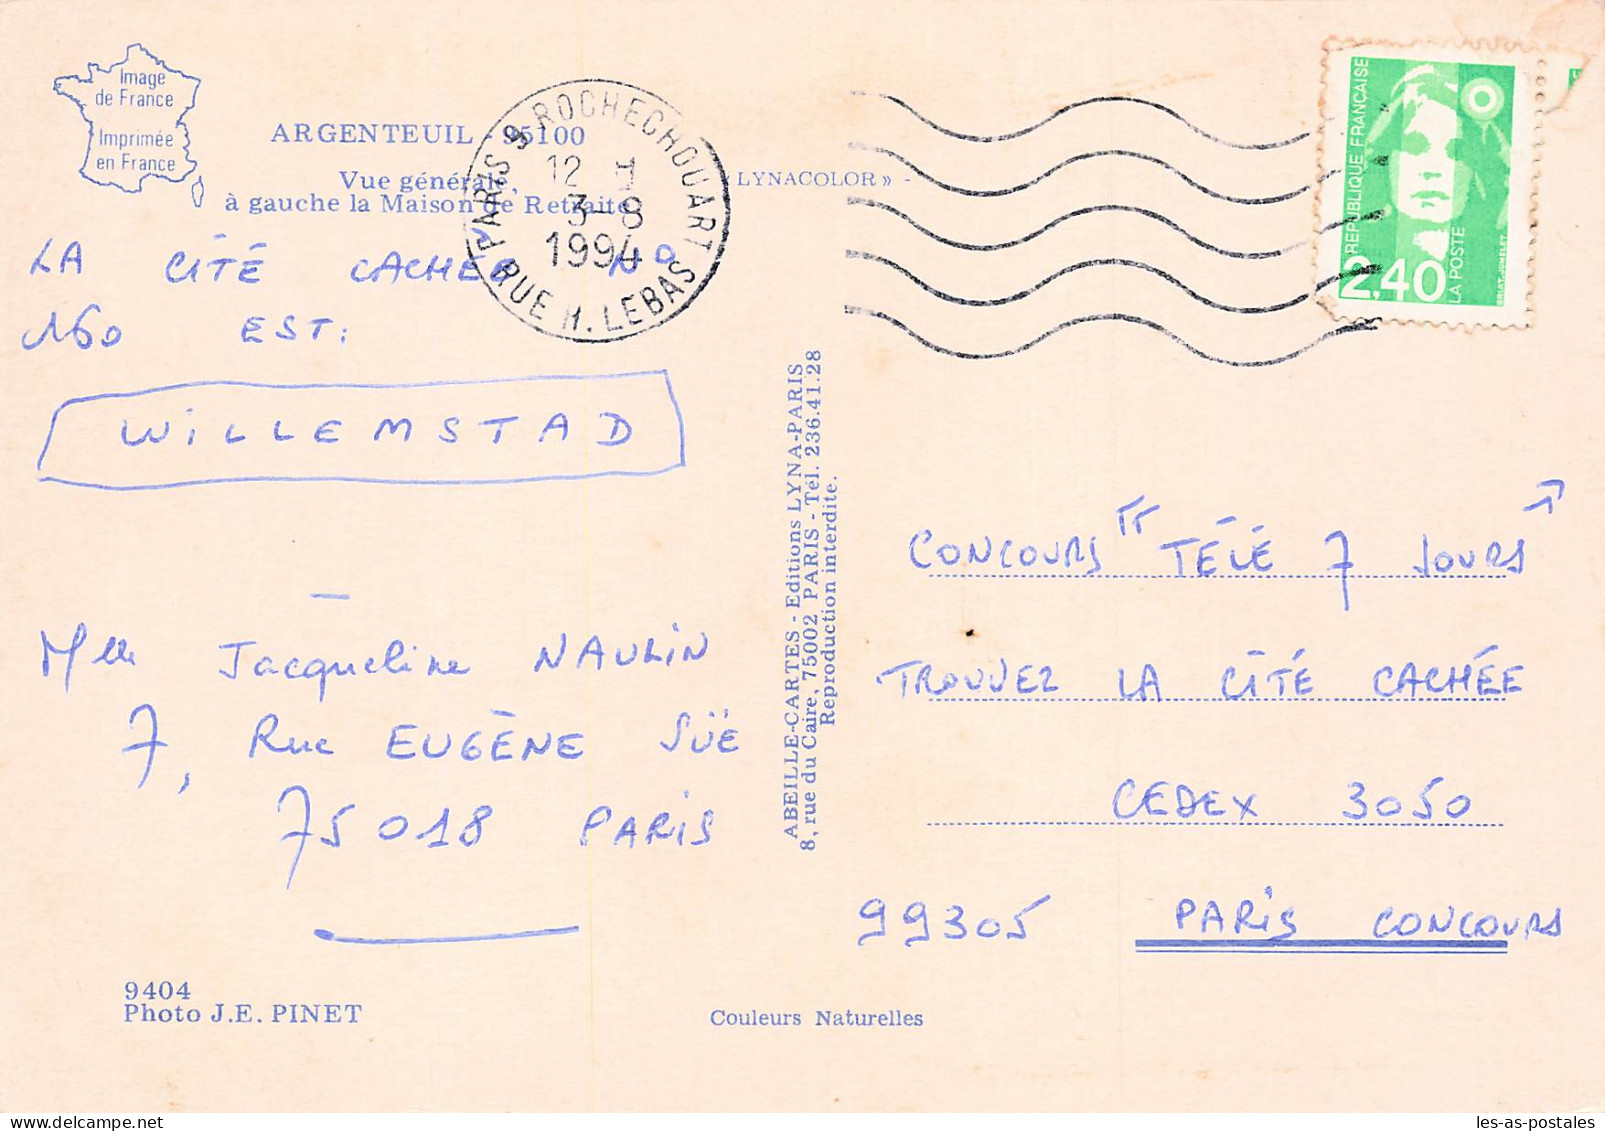 Image
de France
Imprimée
en France
ARGENTEUIL - 95100
Vue générale,
à gauche la Maison de Retraite
« LYNACOLOR » -
PARIS 9 ROCHECHOUART
12 H
3-8
1994
RUE H. LEBAS
REPUBLIQUE FRANÇAISE
2,40
LA POSTE
BRIAT-JUMELET
LA CITÉ CACHÉE N°
160 EST:
WILLEMSTAD
Mlle Jacqueline NAULIN
7, Rue EUGÈNE SÜE
75018 PARIS
9404
Photo J.E. PINET
ABEILLE-CARTES - Editions LYNA-PARIS
8, rue du Caire, 75002 PARIS - Tél. 236.41.28
Reproduction interdite.
Couleurs Naturelles
CONCOURS "TÉLÉ 7 JOURS"
TROUVEZ LA CITÉ CACHÉE
CEDEX 3050
99305 PARIS CONCOURS
les-as-postales.com